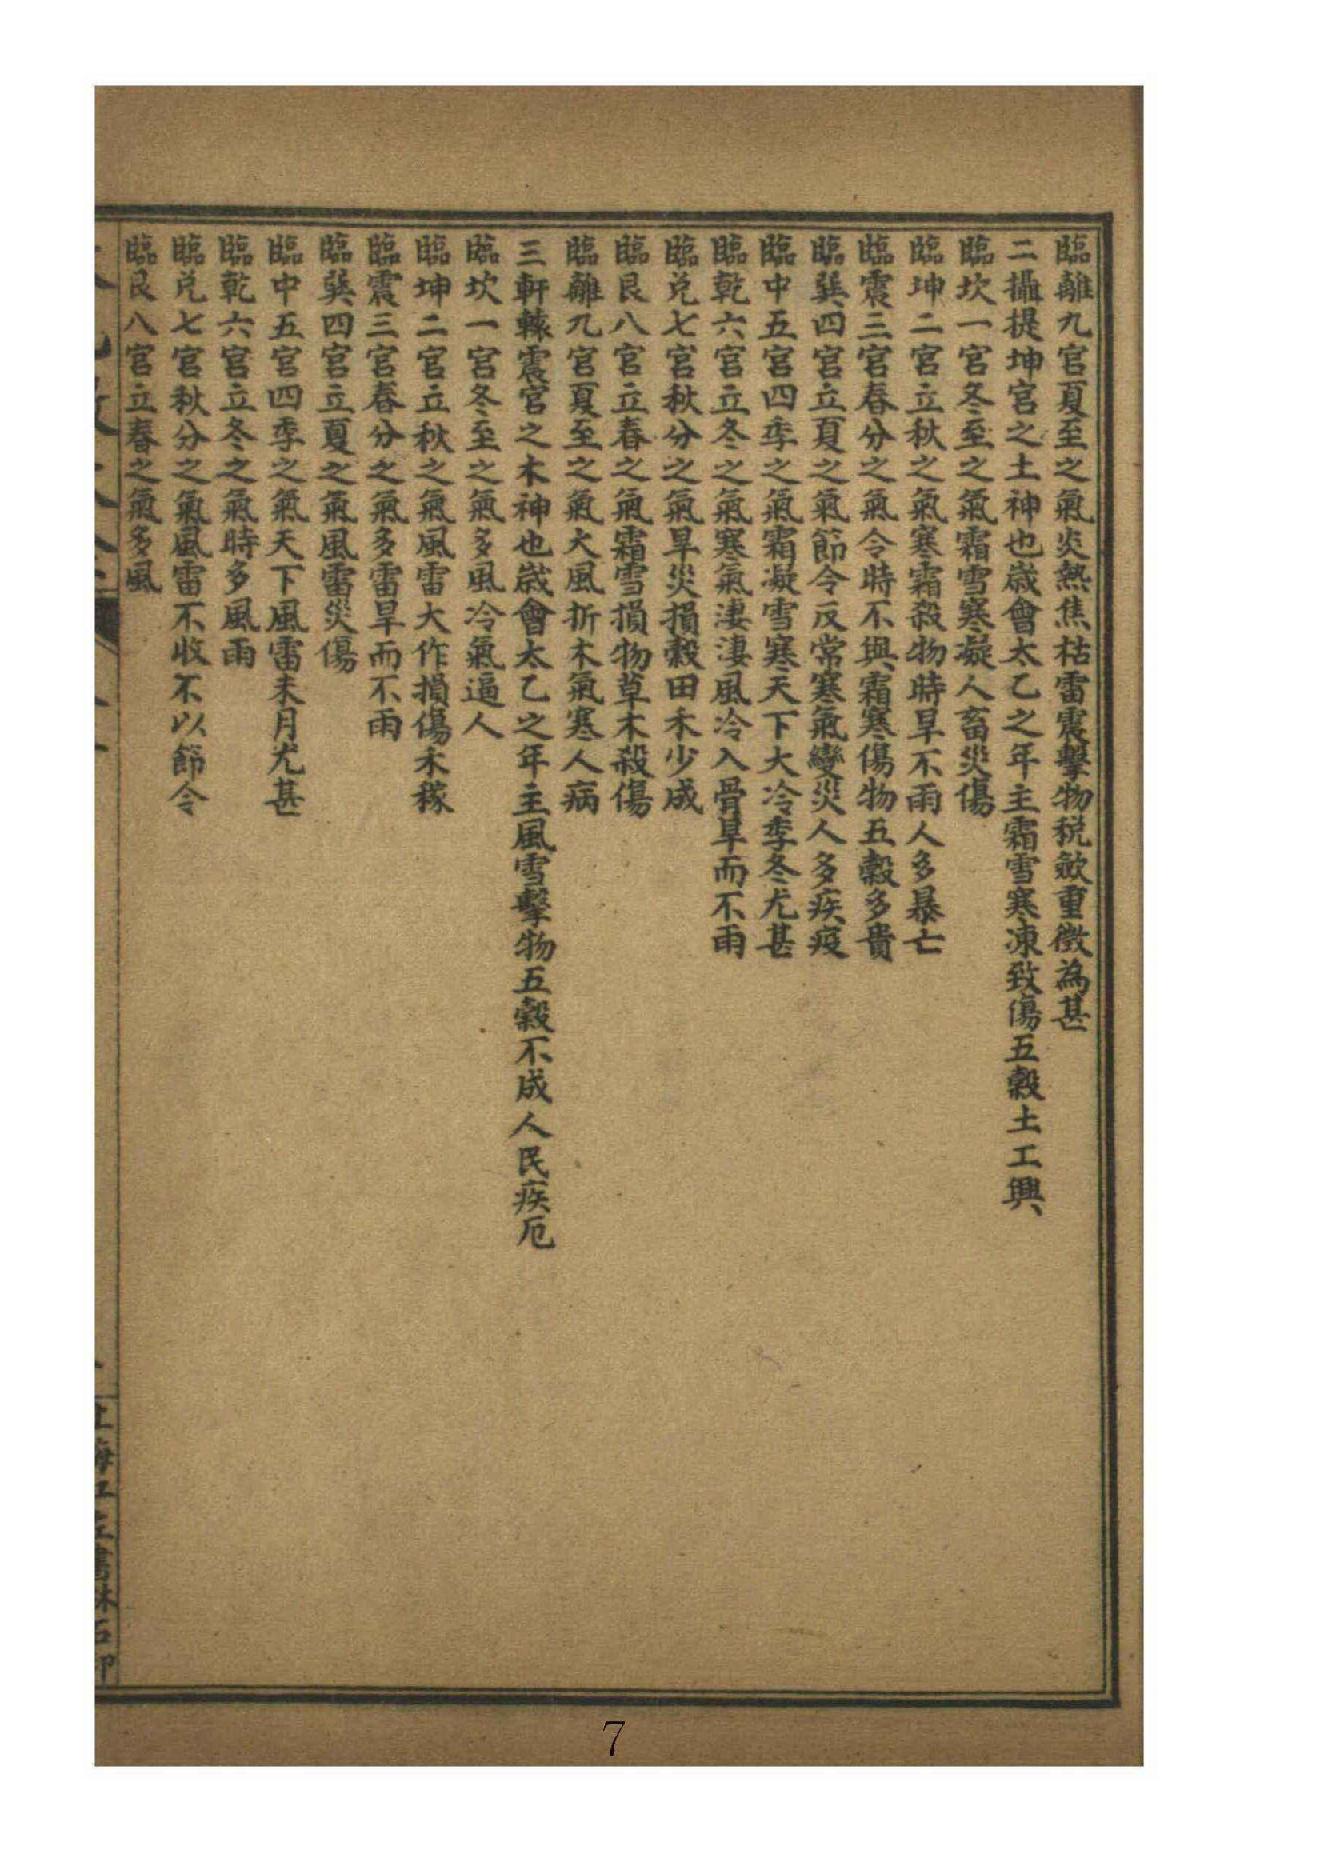 臨離九宮夏至之氣炎熱焦枯雷震擊物稅歛重徵為甚
二攝提坤宮之土神也嵗會太乙之年主霜雪寒凍致傷五穀土工興
臨坎一宮冬至之氣霜雪寒凝人畜災傷
臨坤二宮立秋之氣寒霜殺物時旱不雨人多暴亡
臨震三宮春分之氣令時不興霜寒傷物五穀多貴
臨巽四宮立夏之氣節令反常寒氣變災人多疾疫
臨中五宮四季之氣霜凝雪寒天下大冷季冬尤甚
臨乾六宮立冬之氣寒氣淒淒風冷入骨旱而不雨
臨兌七宮秋分之氣旱災損穀田禾少成
臨艮八宮立春之氣霜雪損物草木殺傷
臨離九宮夏至之氣大風折木氣寒人病
三軒轅震宮之木神也嵗會太乙之年主風雪擊物五穀不成人民疾厄
臨坎一宮冬至之氣多風冷氣逼人
臨坤二宮立秋之氣風雷大作損傷禾稼
臨震三宮春分之氣多雷旱而不雨
臨巽四宮立夏之氣風雷災傷
臨中五宮四季之氣天下風雷未月尤甚
臨乾六宮立冬之氣時多風雨
臨兌七宮秋分之氣風雷不收不以節令
臨艮八宮立春之氣多風
7